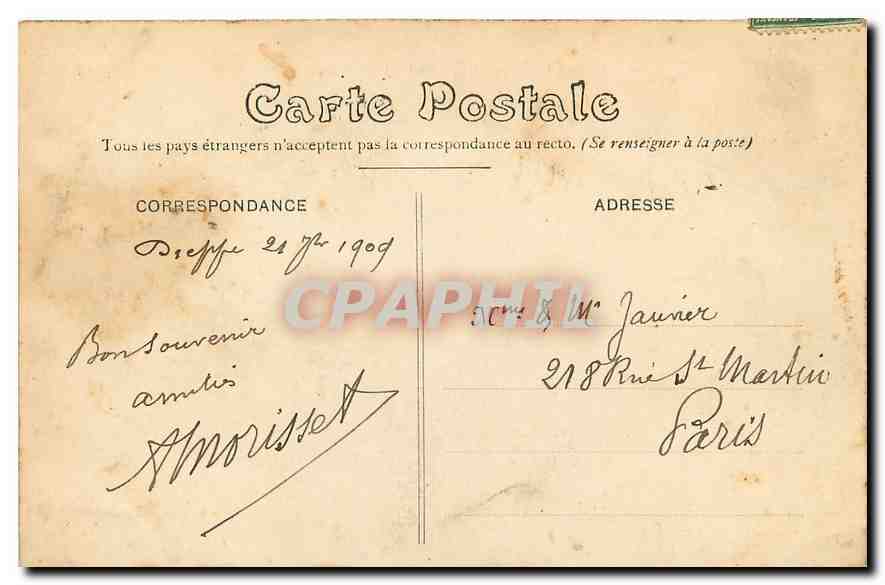 Carte Postale
Tous les pays étrangers n'acceptent pas la correspondance au recto. (Se renseigner à la poste)
CORRESPONDANCE
Dieppe 21 7bre 1909
Bon souvenir
amitiés
AMorisset
ADRESSE
Mme & Mr Janvier
218 Rue St Martin
Paris
CPAPHIL